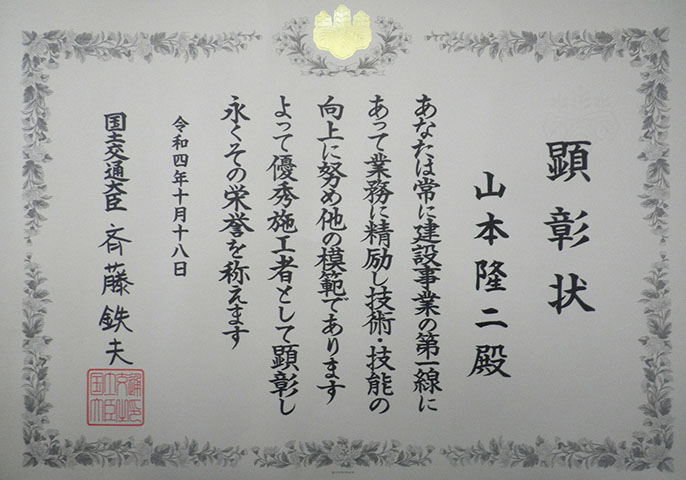 顕彰状
山本隆二殿
あなたは常に建設事業の第一線に
あって業務に精励し技術・技能の
向上に努め他の模範であります
よって優秀施工者として顕彰し
永くその栄誉を称えます
令和四年十月十八日
国土交通大臣 斉藤鉄夫